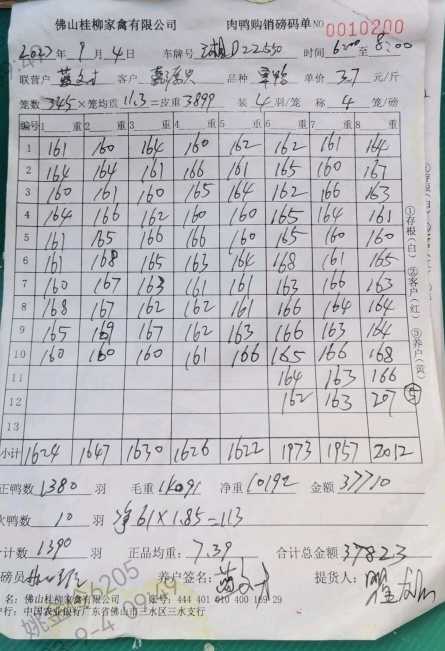 佛山桂柳家禽有限公司 肉鸭购销磅码单 NO 0010200
2023年9月4日 车牌号 D22550 时间 6:00至8:00
联营户 客户 品种 单价 3.7 元/斤
笼数 345×笼均重 11.3=皮重 3899 装 4 羽/笼 称 4 笼/磅
编号 1 重 2 重 3 重 4 重 5 重 6 重 7 重 8 重
1 161 160 164 160 162 162 161 164
2 164 164 161 166 161 165 160 167
3 160 161 160 165 164 162 166 163
4 164 166 162 160 160 165 164 161
5 161 165 166 166 160 165 160 160
6 161 168 165 163 164 168 161 165
7 160 167 163 161 161 163 166 163
8 168 167 162 162 161 166 164 164
9 165 169 167 162 163 166 163 164
10 160 160 160 161 166 165 166 168
11 164 163 166
12 162 163 207
13
小计 1624 1647 1630 1626 1622 1973 1957 2012
正鸭数 1380 羽 毛重 14091 净重 10192 金额 37710
鸭数 10 羽 净61×1.85=113
计数 1390 羽 正品均重: 7.39 合计总金额 37823
磅员 养户签名: 提货人:
名: 佛山桂柳家禽有限公司 账号: 444 401 010 400 169 29
行: 中国农业银行广东省佛山市三水区三水支行
①存根(白) ②客户(红) ③养户(黄)
⑤